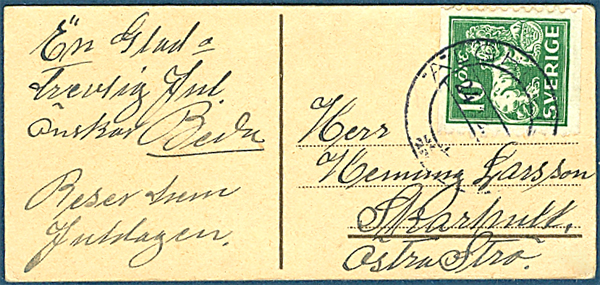 En Glad o
Trevlig Jul
Önskar Beda
Reser hem
Juldagen.
10 ÖRE
SVERIGE
Herr
Henning Larsson
Skarhult,
Östra Strö.